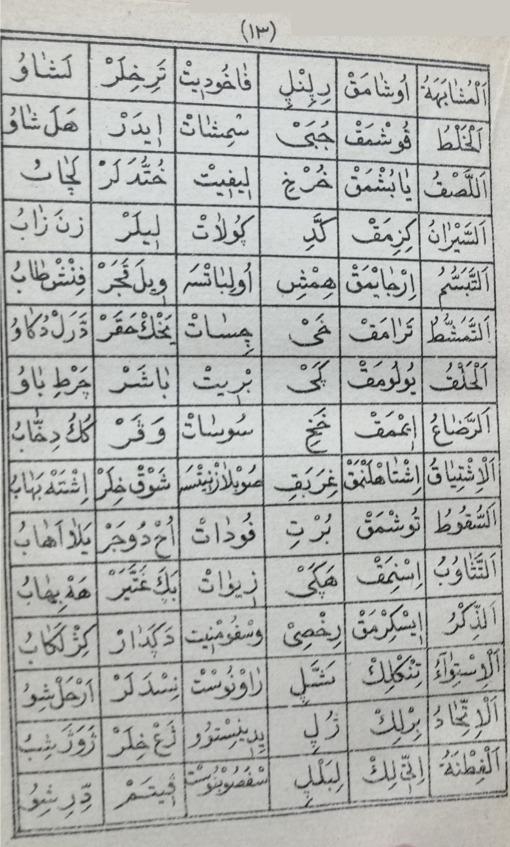 (١٣)
اَلْمُشَابَهَةُ اُوشَامَقْ رِلِنْلِ فَاخُودِيتْ تَرِخِلَرْ لَشَاوُ
اَلْخَلْطُ قُوشْمَقْ جُبَىْ سْمِشَاتْ اِيدَرْ هَلَ شَاوُ
اَللَّصْقُ يَابُشْمَقْ خُرْخِ لِيفِيتْ خُتُّدَلَرْ لِجَابُ
اَلسَّيْرَانُ كِزِمَقْ كَدَّ كُولَاتْ لِيلَرْ زَنَ زَابُ
اَلتَّبَسُّمُ اِرْجَايْمَقْ هِمْشِ اُولِبَاتْسَه وِيلَ قَجَرْ فِنْشْ طَابُ
اَلتَّمَشُّطُ تَرَامَقْ خَىْ جِسَاتْ يَخْكْ حَقَرْ دَرَلْ دُكَاوُ
اَلْحَلْقُ يُولُومَقْ كَىْ بْرِيتْ بَاشَرْ جَرْطِ بَاوُ
اَلرَّضَاعُ اِمْمَقْ خَخِ سُوسَاتْ وَقَرْ كُكُ دِخَّابُ
اَلْاِشْتِيَاقُ اِشْتَاهْلَنْمَقْ غِرَبَقِ شَوْقْ خِلَرْ اِشْتَهْ بَهَابُ
اَلسُّقُوطُ تُوشْمَقْ بُرْتِ فُودَاتْ اُحْ دُوجَرْ يَلَا اَهَابُ
اَلتَّثَاوُبُ اِسْنِمَقْ هَكَىْ زِيوَاتْ بَكَ غَتَّيَرْ هَهْ بِهَابُ
اَلذِّكْرُ اِيسْكِرْمَقْ رِخْصِىْ دَكَدَارْ كِزْ لَكَابُ
اَلْاِسْتِوَاءُ تِنْكْلِكْ بَشَلِ رَاوْنُوسْتْ نِسْدَلَرْ اَرْحَلْ شِوُ
اَلْاِتِّحَادُ بِرْلِكْ زُلِ يِدِينِسْتْوُو لَرَعْ خِلَرْ زَوَزْ شِبُ
اَلْفِطْنَةُ لِكْ لِبَلْلِ قِيتَمْ دِرِشِوُ